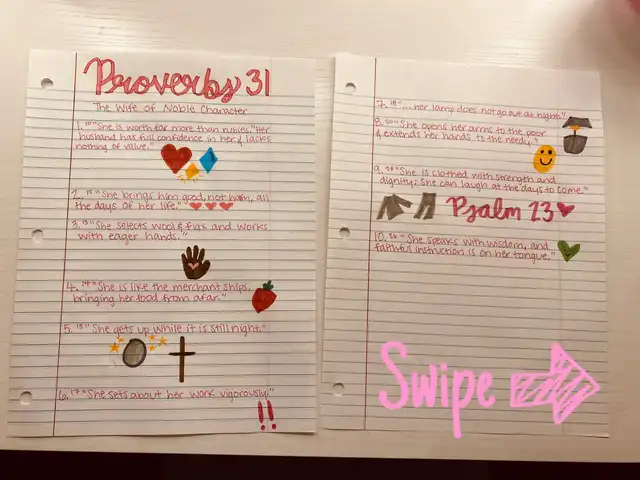 Proverbs 31
The Wife of Noble Character
1. 10 "She is worth far more than rubies. "Her
husband has full confidence in her & lacks
nothing of value."
2. 12 "She brings him good, not harm, all
the days of her life."
3. 13 "She selects wool & flax and works
with eager hands."
4. 14 "She is like the merchant ships,
bringing her food from afar."
5. 15 "She gets up while it is still night."
6. 17 "She sets about her work vigorously;"
!!
7. 18 "... her lamp does not go out at night."
8. 20 "She opens her arms to the poor
& extends her hands to the needy."
9. 25 "She is clothed with strength and
dignity; She can laugh at the days to come."
Psalm 23
10. 26 "She speaks with wisdom, and
faithful instruction is on her tongue."
Swipe